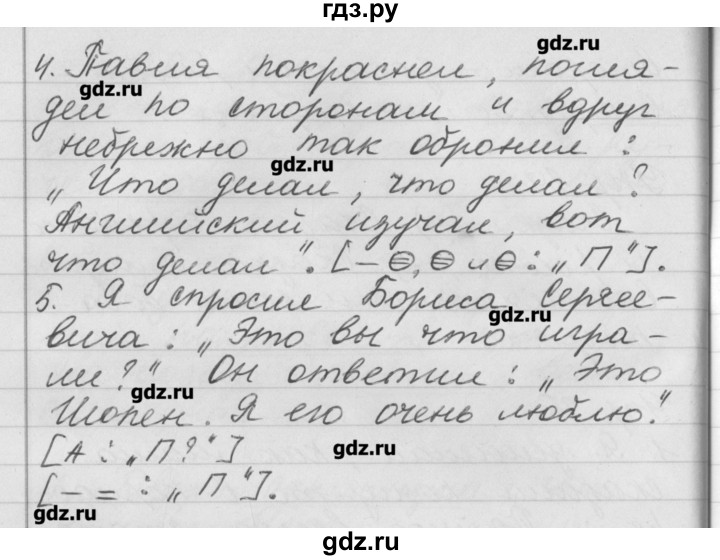 гдз.ру
4. Павля покраснел, погля-
gdz.ru
gdz.ru
дел по сторонам и вдруг
небрежно так обронил:
gdz.ru
„Что делал, что делал?
Английский изучал, вот
что делал". [–⊖,⊖ и ⊖: „П"].
5. Я спросил Бориса Серге-
gdz.ru
вича: „Это вы что игра-
ли?" Он ответил: „Это
gdz.ru
Шопен. Я его очень люблю."
[А: „П?"]
gdz.ru
[– = : „П"].
gdz.ru
gdz.ru